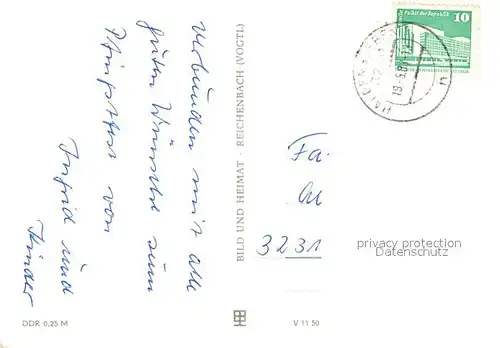 verbunden mit alle
guten Wünsche zum
Pfingstfest von
Ingrid und
Kinder
BILD UND HEIMAT · REICHENBACH (VOGTL)
Palast der Republik
10
19.-5.8
Fa.
3231
privacy protection
Datenschutz
DDR 0,25 M
V 11 50